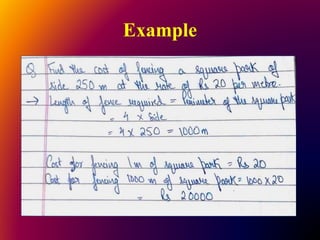 Example
Q Find the cost of fencing a square park of
side 250 m at the rate of Rs 20 per metre.
→ Length of fence required = Perimeter of the square park
= 4 × side
= 4 × 250 = 1000m
Cost for fencing 1m of square park = Rs 20
Cost for fencing 1000 m of square park = 1000 × 20
= Rs 20000